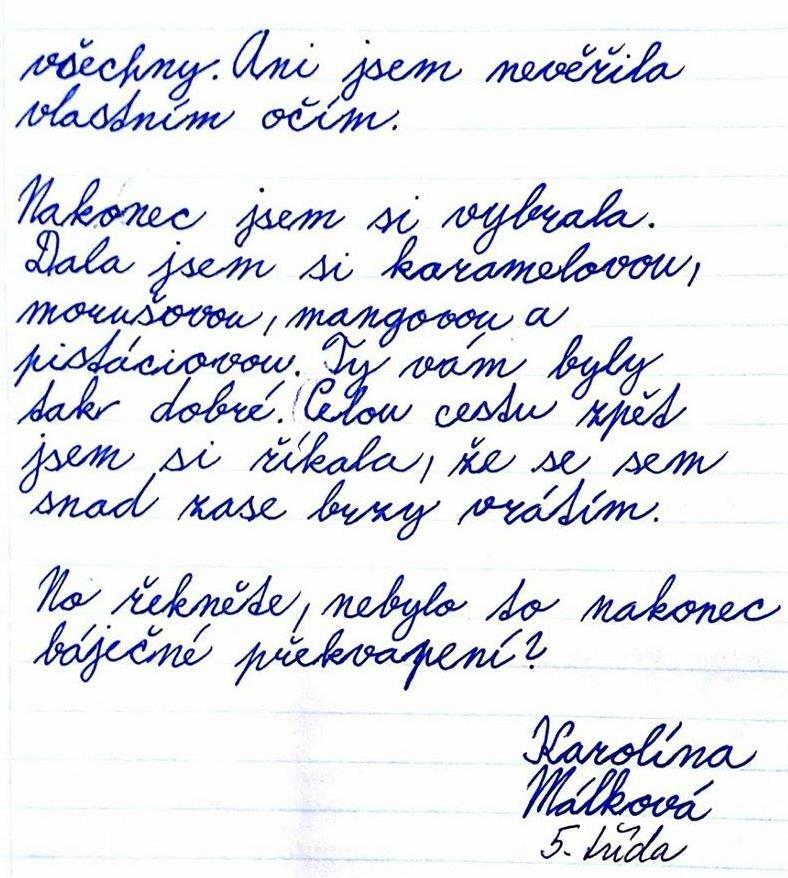 všechny. Ani jsem nevěřila
vlastním očím.
Nakonec jsem si vybrala.
Dala jsem si karamelovou,
morušovou, mangovou a
pistáciovou. Ty vám byly
tak dobré. Celou cestu zpět
jsem si říkala, že se sem
snad zase brzy vrátím.
No řekněte, nebylo to nakonec
báječné překvapení?
Karolína
Málková
5. třída